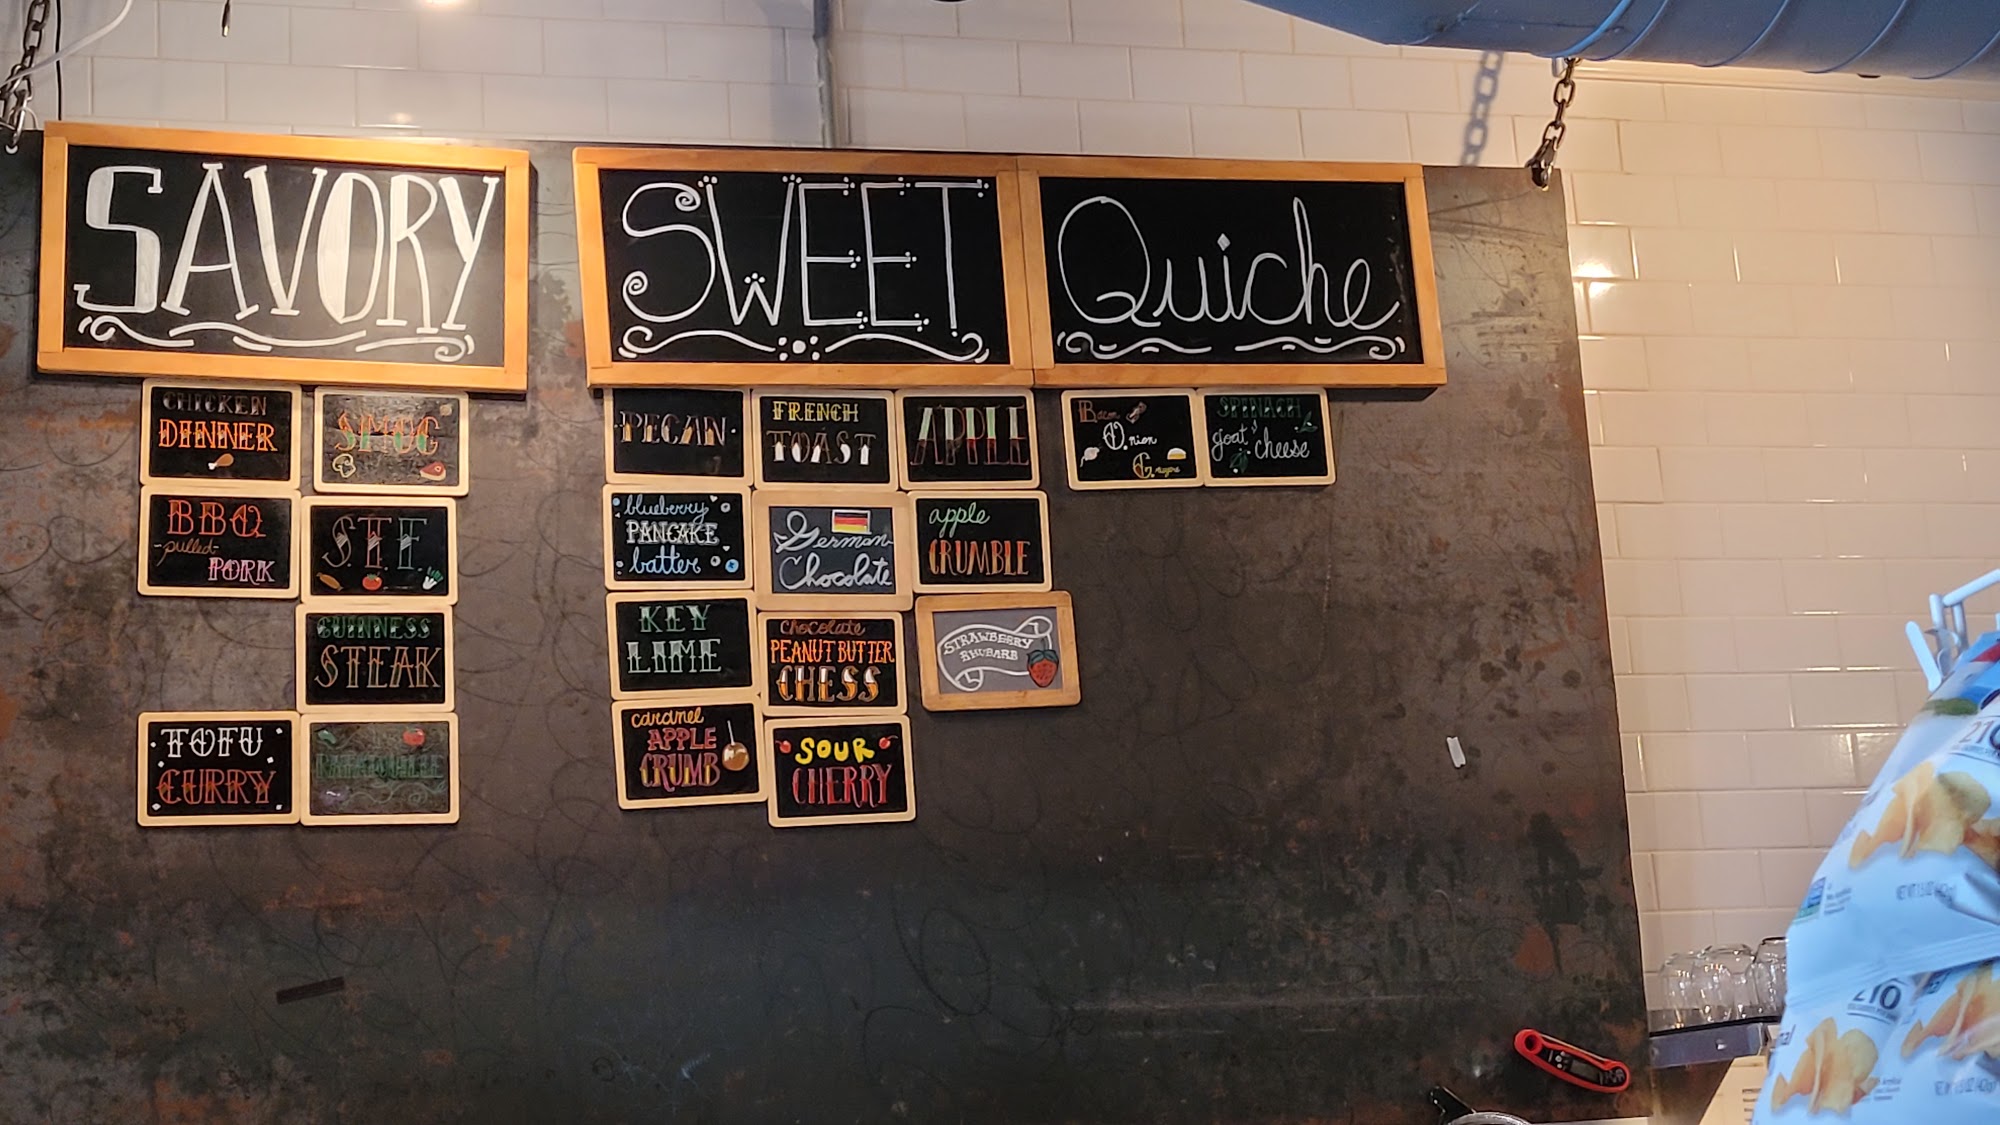 SAVORY
CHICKEN
DINNER
SMOG
BBQ
-pulled-
PORK
S.T.E.
GUINNESS
STEAK
TOFU
CURRY
RATATOUILLE
SWEET
PECAN
FRENCH
TOAST
APPLE
blueberry
PANCAKE
batter
German
Chocolate
apple
CRUMBLE
KEY
LIME
Chocolate
PEANUT BUTTER
CHESS
STRAWBERRY
RHUBARB
caramel
APPLE
CRUMB
SOUR
CHERRY
Quiche
Bacon
Onion
Gruyere
SPINACH
goat
cheese
210
NET WT 1.5 OZ (42g)
210